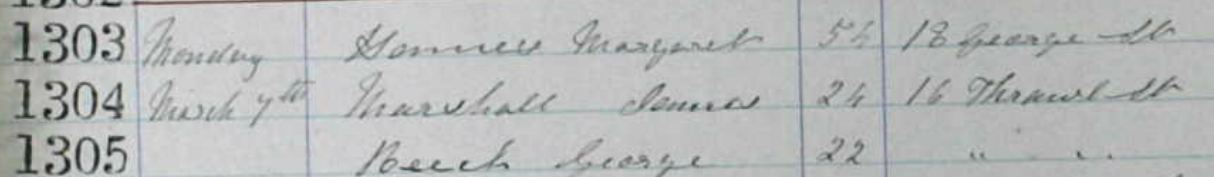 1303 Monday Margaret 54 18 George St
1304 March 7th Marshall James 24 16 Thrawl St
1305 Beech George 22 " "